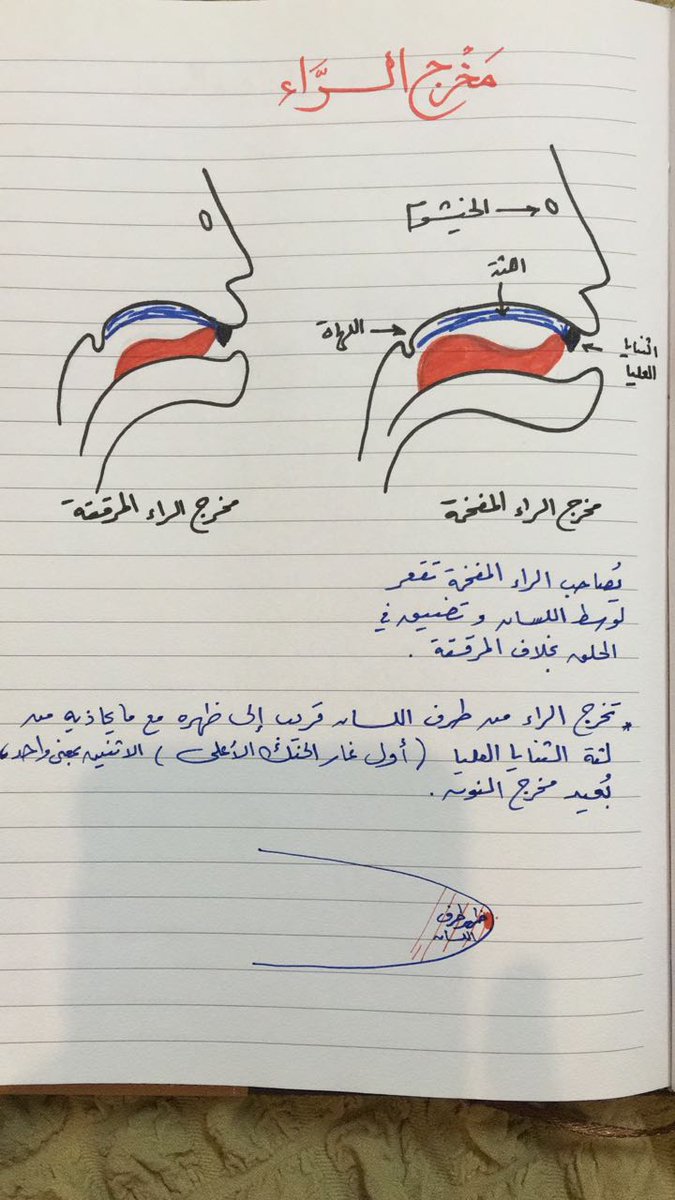 مَخْرج الـرَّاء
الخيشوم
اللثة
اللهاة
الثنايا
العليا
مخرج الراء المفخمة
مخرج الراء المرققة
يُصاحب الراء المفخمة تقعر
لوسط اللسان و تضييق في
الحلق بخلاف المرققة .
* تخرج الراء من طرف اللسان قريب إلى ظهره مع ما يحاذيه من
لثة الثنايا العليا ( أول غار الحنك الأعلى ) الاثنين بمعنى واحد ،
بُعيد مخرج النون .
ظهر طرف
اللسان